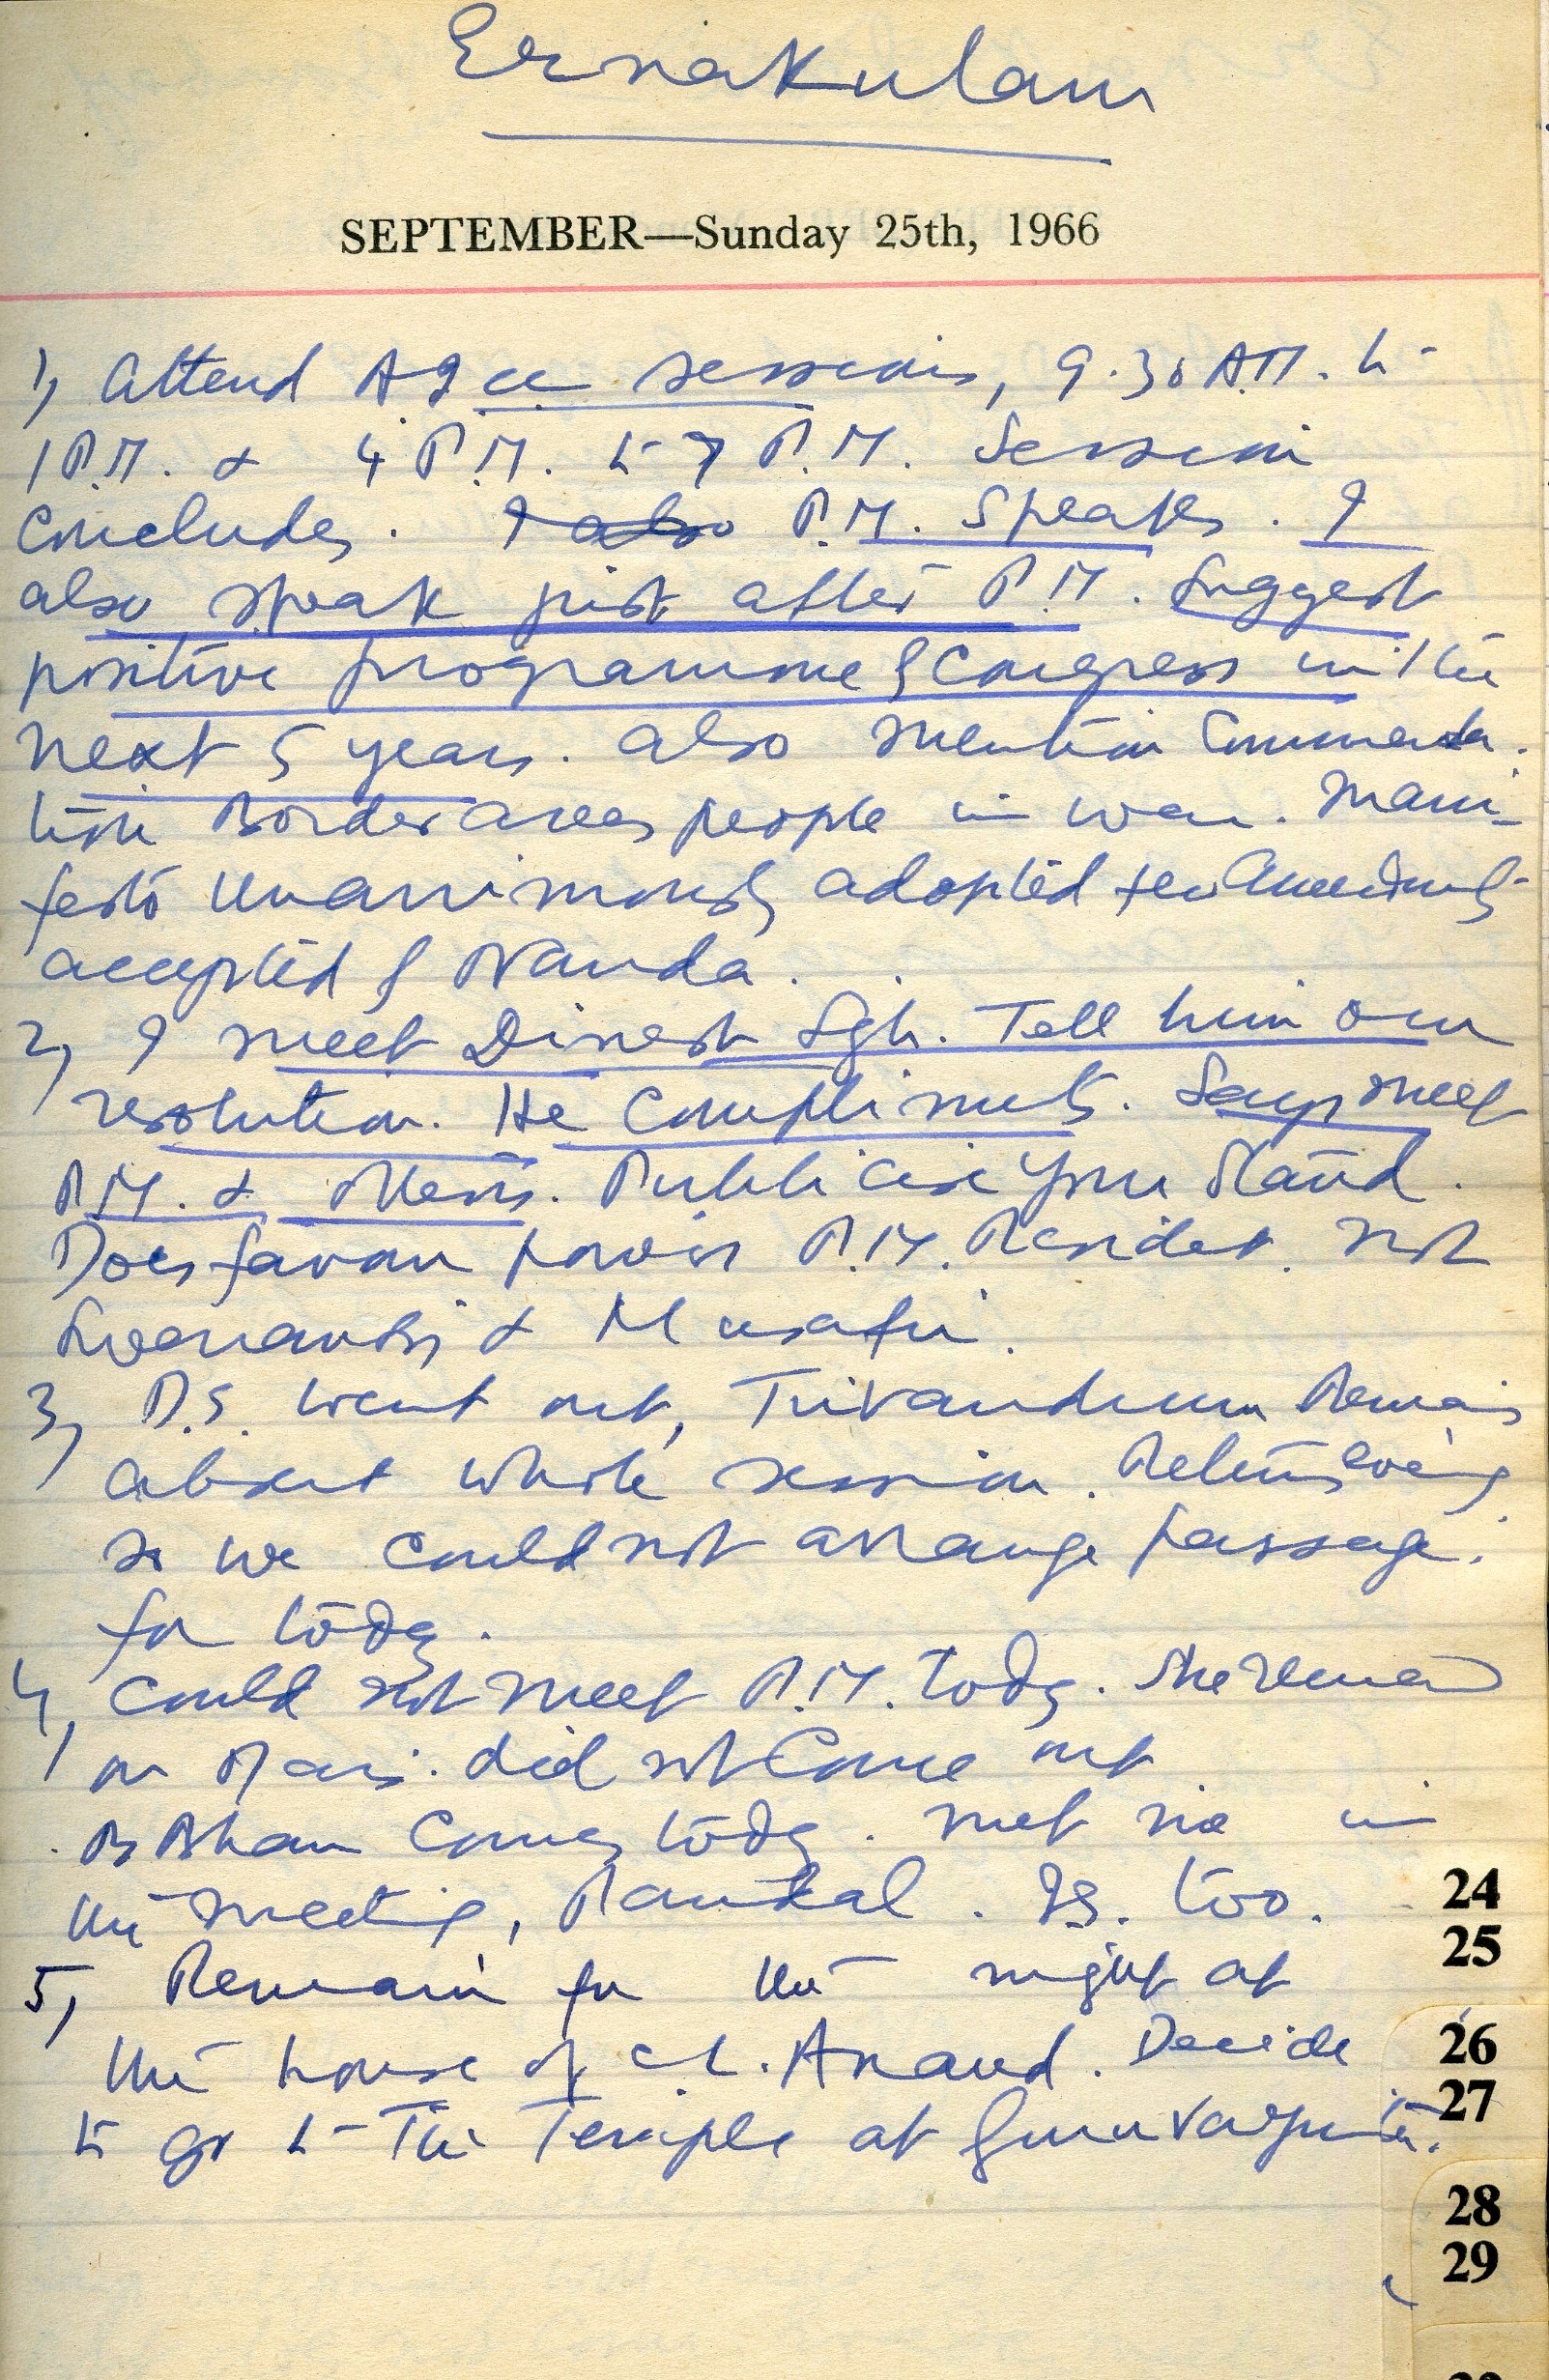 Ernakulam
SEPTEMBER—Sunday 25th, 1966
1, Attend AICC sessions, 9.30 A.M. to
1 P.M. & 4 P.M. to 7 P.M. Session
Concludes. I also P.M. Speaks. I
also speak just after P.M. Suggest
positive programme of Congress in the
next 5 years. Also mention Commenda-
tion Border areas people in war. Mani-
festo Unanimously adopted few Amendments
accepted by Nanda.
2, I meet Dinesh Sgh. Tell him our
resolution. He Compliments. Says meet
P.M. & others. Publicise your stand.
Does favour P.M. not
Swaran & Musafir.
3, P.S. went out, Trivandrum Remains
absent whole session. Returns evening
so we could not arrange passage
for today.
4, Could not meet P.M. today. She remained
on Dais. did not Come out
Comes today. met me in
the meeting, too.
5, Remain for the night at
the house of Anand. Decide
to go to The Temple at Guruvayur
24
25
26
27
28
29